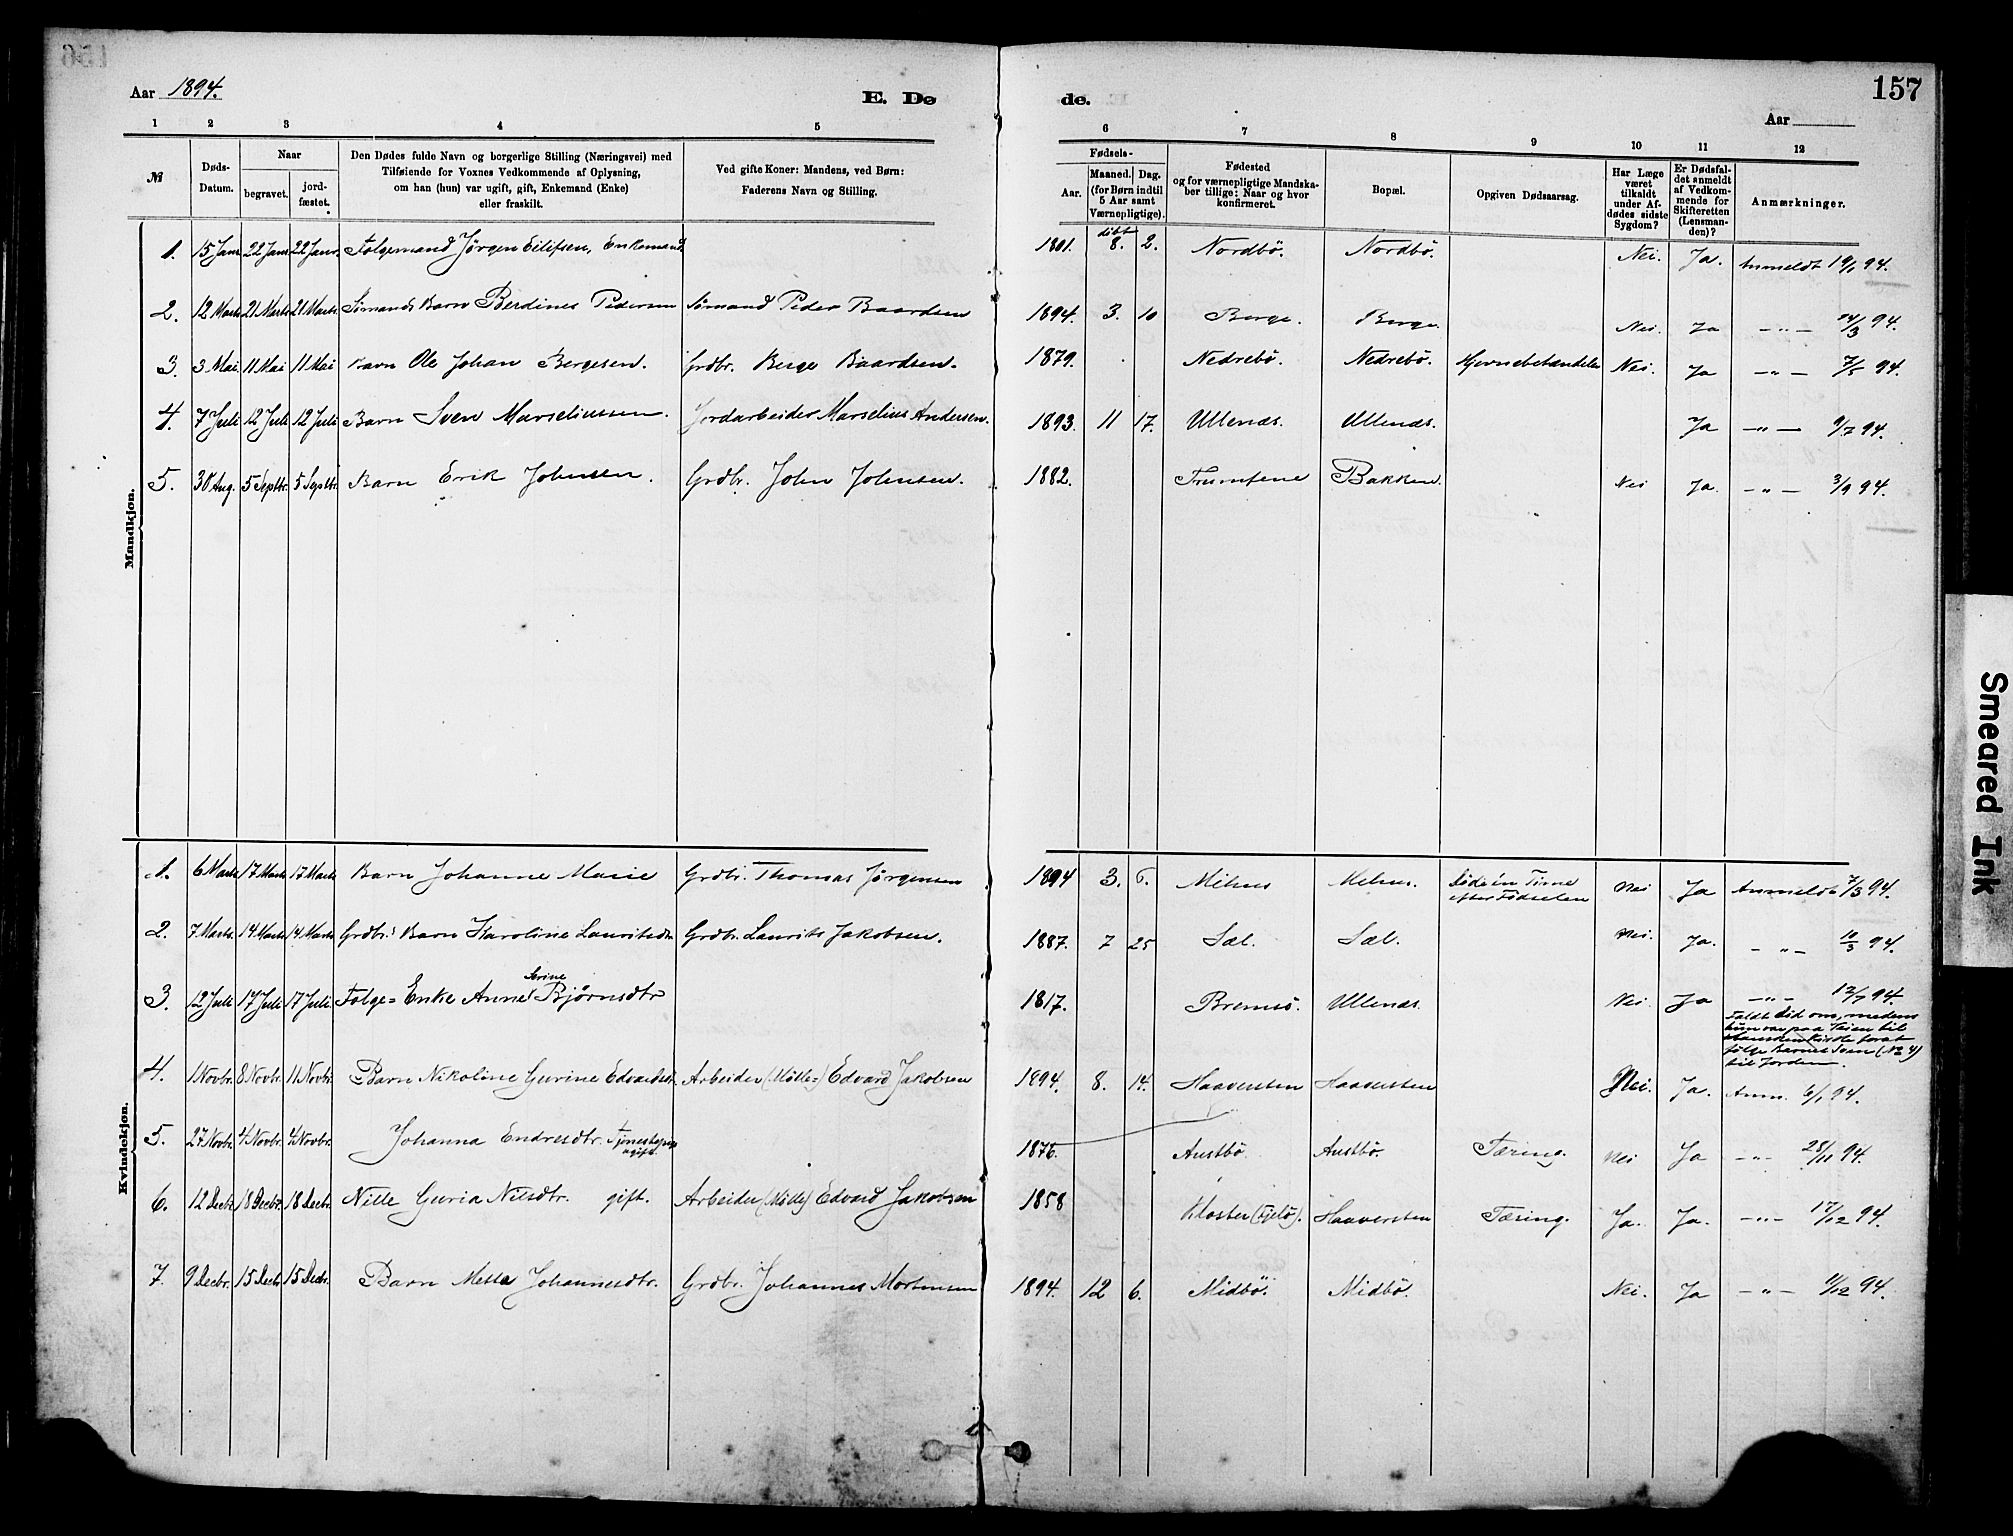 156
Aar 1894.
E. Dø
de.
157
Aar
1 2 3 4 5 6 7 8 9 10 11 12
№
Døds-
Datum.
Naar
begravet.
jord-
fæstet.
Den Dødes fulde Navn og borgerlige Stilling (Næringsvei) med
Tilføiende for Voxnes Vedkommende af Oplysning,
om han (hun) var ugift, gift, Enkemand (Enke)
eller fraskilt.
Ved gifte Koner: Mandens, ved Børn:
Faderens Navn og Stilling.
Fødsels-
Aar.
Maaned. Dag.
(for Børn indtil
5 Aar samt
Værnepligtige).
Fødested
og for værnepligtige Mandska-
ber tillige: Naar og hvor
konfirmeret.
Bopæl.
Opgiven Dødsaarsag.
Har Læge
været
tilkaldt
under Af-
dødes sidste
Sygdom?
Er Dødsfal-
det anmeldt
af Vedkom-
mende for
Skifteretten
(Lensman-
den)?
Anmærkninger.
Mandkjøn.
1. 15 Janr 22 Janr 22 Janr. Folgemand Jørgen Eilifsen, Enkemand 1801. døbt 8. 2. Nordbö. Nordbö. Nei. Ja. Anmeldt 19/1 94.
2. 12 Marts 21 Marts 21 Marts. Sömands Barn Berdines Pedersen Sömand Peder Baardsen 1894. 3. 10 Berge. Berge. Nei. Ja -"- 14/3 94.
3. 3 Mai 11 Mai 11 Mai Barn Ole Johan Bergesen. Grdbr. Berge Baardsen. 1879. Nedrebö. Nedrebö. Hjernebetændelse Nei. Ja -"- 7/5 94.
4. 7 Juli 12 Juli 12 Juli Barn Sven Marseliussen. Jordarbeider Marselius Andersen. 1893. 11 17. Ullenæs. Ullenæs. Ja -"- 9/7 94.
5. 30 Aug. 5 Septbr. 5 Septbr. Barn Erik Johnsen. Grdbr. John Johnsen. 1882. Bakken Nei Ja. -"- 3/9 94.
Kvindekjøn.
1. 6 Marts 17 Marts 17 Marts Barn Johanne Marie Grdbr. Thomas Jørgensen 1894 3. 6. Mehus Mehus. Döde en Time
efter Fødselen Nei Ja Anmeldt 7/3 94.
2. 7 Marts. 14 Marts 14 Marts Grdbr. Barn Karoline Lauritsdtr Grdbr. Laurits Jakobsen. 1887. 7 25 Sæl. Sæl. Nei. Ja. -"- 10/3 94.
3. 12 Juli 17 Juli 17 Juli. Folge= Enke Anne Serine Bjørnsdtr 1817. Bremsö. Ullenæs. Nei. Ja -"- 12/7 94.
Faldt död om, medens
hun var paa Veien til
Kirke forat
følge Barnet Sven (No 4)
til Jorden.
4. 1 Novbr. 8 Novbr. 11 Novbr. Barn Nikoline Gurine Edvardsdtr. Arbeider (Mölle=) Edvard Jakobsen 1894. 8. 14. Haaversten Haaversten Nei. Ja. Anm. 6/1 94.
5. 27 Novbr. 4 Novbr. 4 Novbr. Johanna Endresdtr. Tjenestepige
ugift. 1876. Austbö. Austbö. Tæring. Nei Ja -"- 28/11 94.
6. 12 Decbr. 18 Decbr. 18 Decbr. Nille Guria Nilsdtr. gift. Arbeider (Mölle) Edvard Jakobsen 1858 Kloster (Fjelö). Haaversten Tæring. Ja. Ja. -"- 17/12 94.
7. 9 Decbr. 15 Decbr 15 Decbr. Barn Mette Johannesdtr. Grdbr. Johannes Mortensen 1894. 12 6. Midbö. Midbö. Nei. Ja -"- 11/12 94.
Smeared Ink